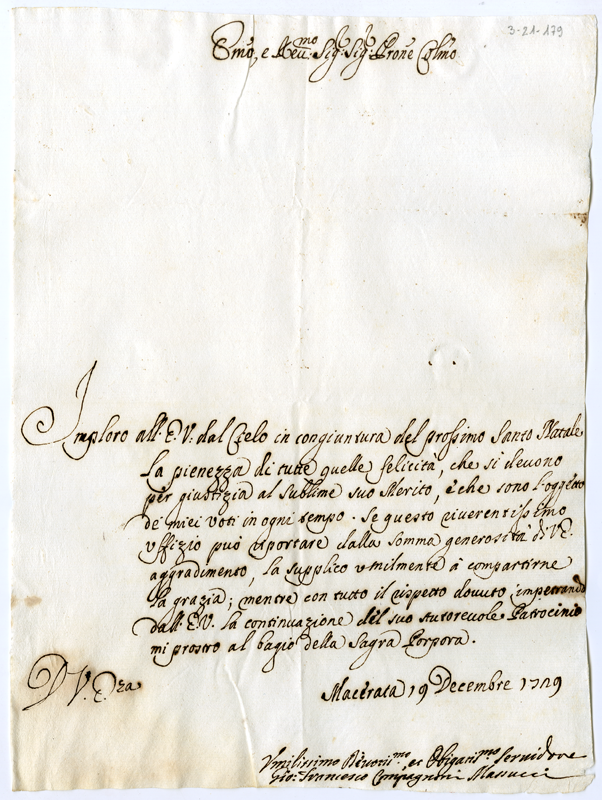 3-21-179
Emo, e Reu:mo Sig: Sig: Prone Colmo
Imploro all'E.V: dal Cielo in congiuntura del prossimo Santo Natale
la pienezza di tutte quelle felicità, che si deuono
per giustizia al sublime suo Merito, e che sono l'oggetto
de' miei voti in ogni tempo. Se questo riuerentissimo
vffizio può riportare dalla somma generosità di V.E.
aggradimento, la supplico vmilmente à compartirne
la grazia; mentre con tutto il rispetto douuto impetrando
dall'E.V. la continuazione del suo Autoreuole Patrocinio
mi prostro al bagio della Sagra Porpora.
D V. E.za
Macerata 19 Decembre 1729
Vmilissimo Diuotis:mo, et Obligatis:mo Seruidore
Gio: Francesco Compagnoni Massucci